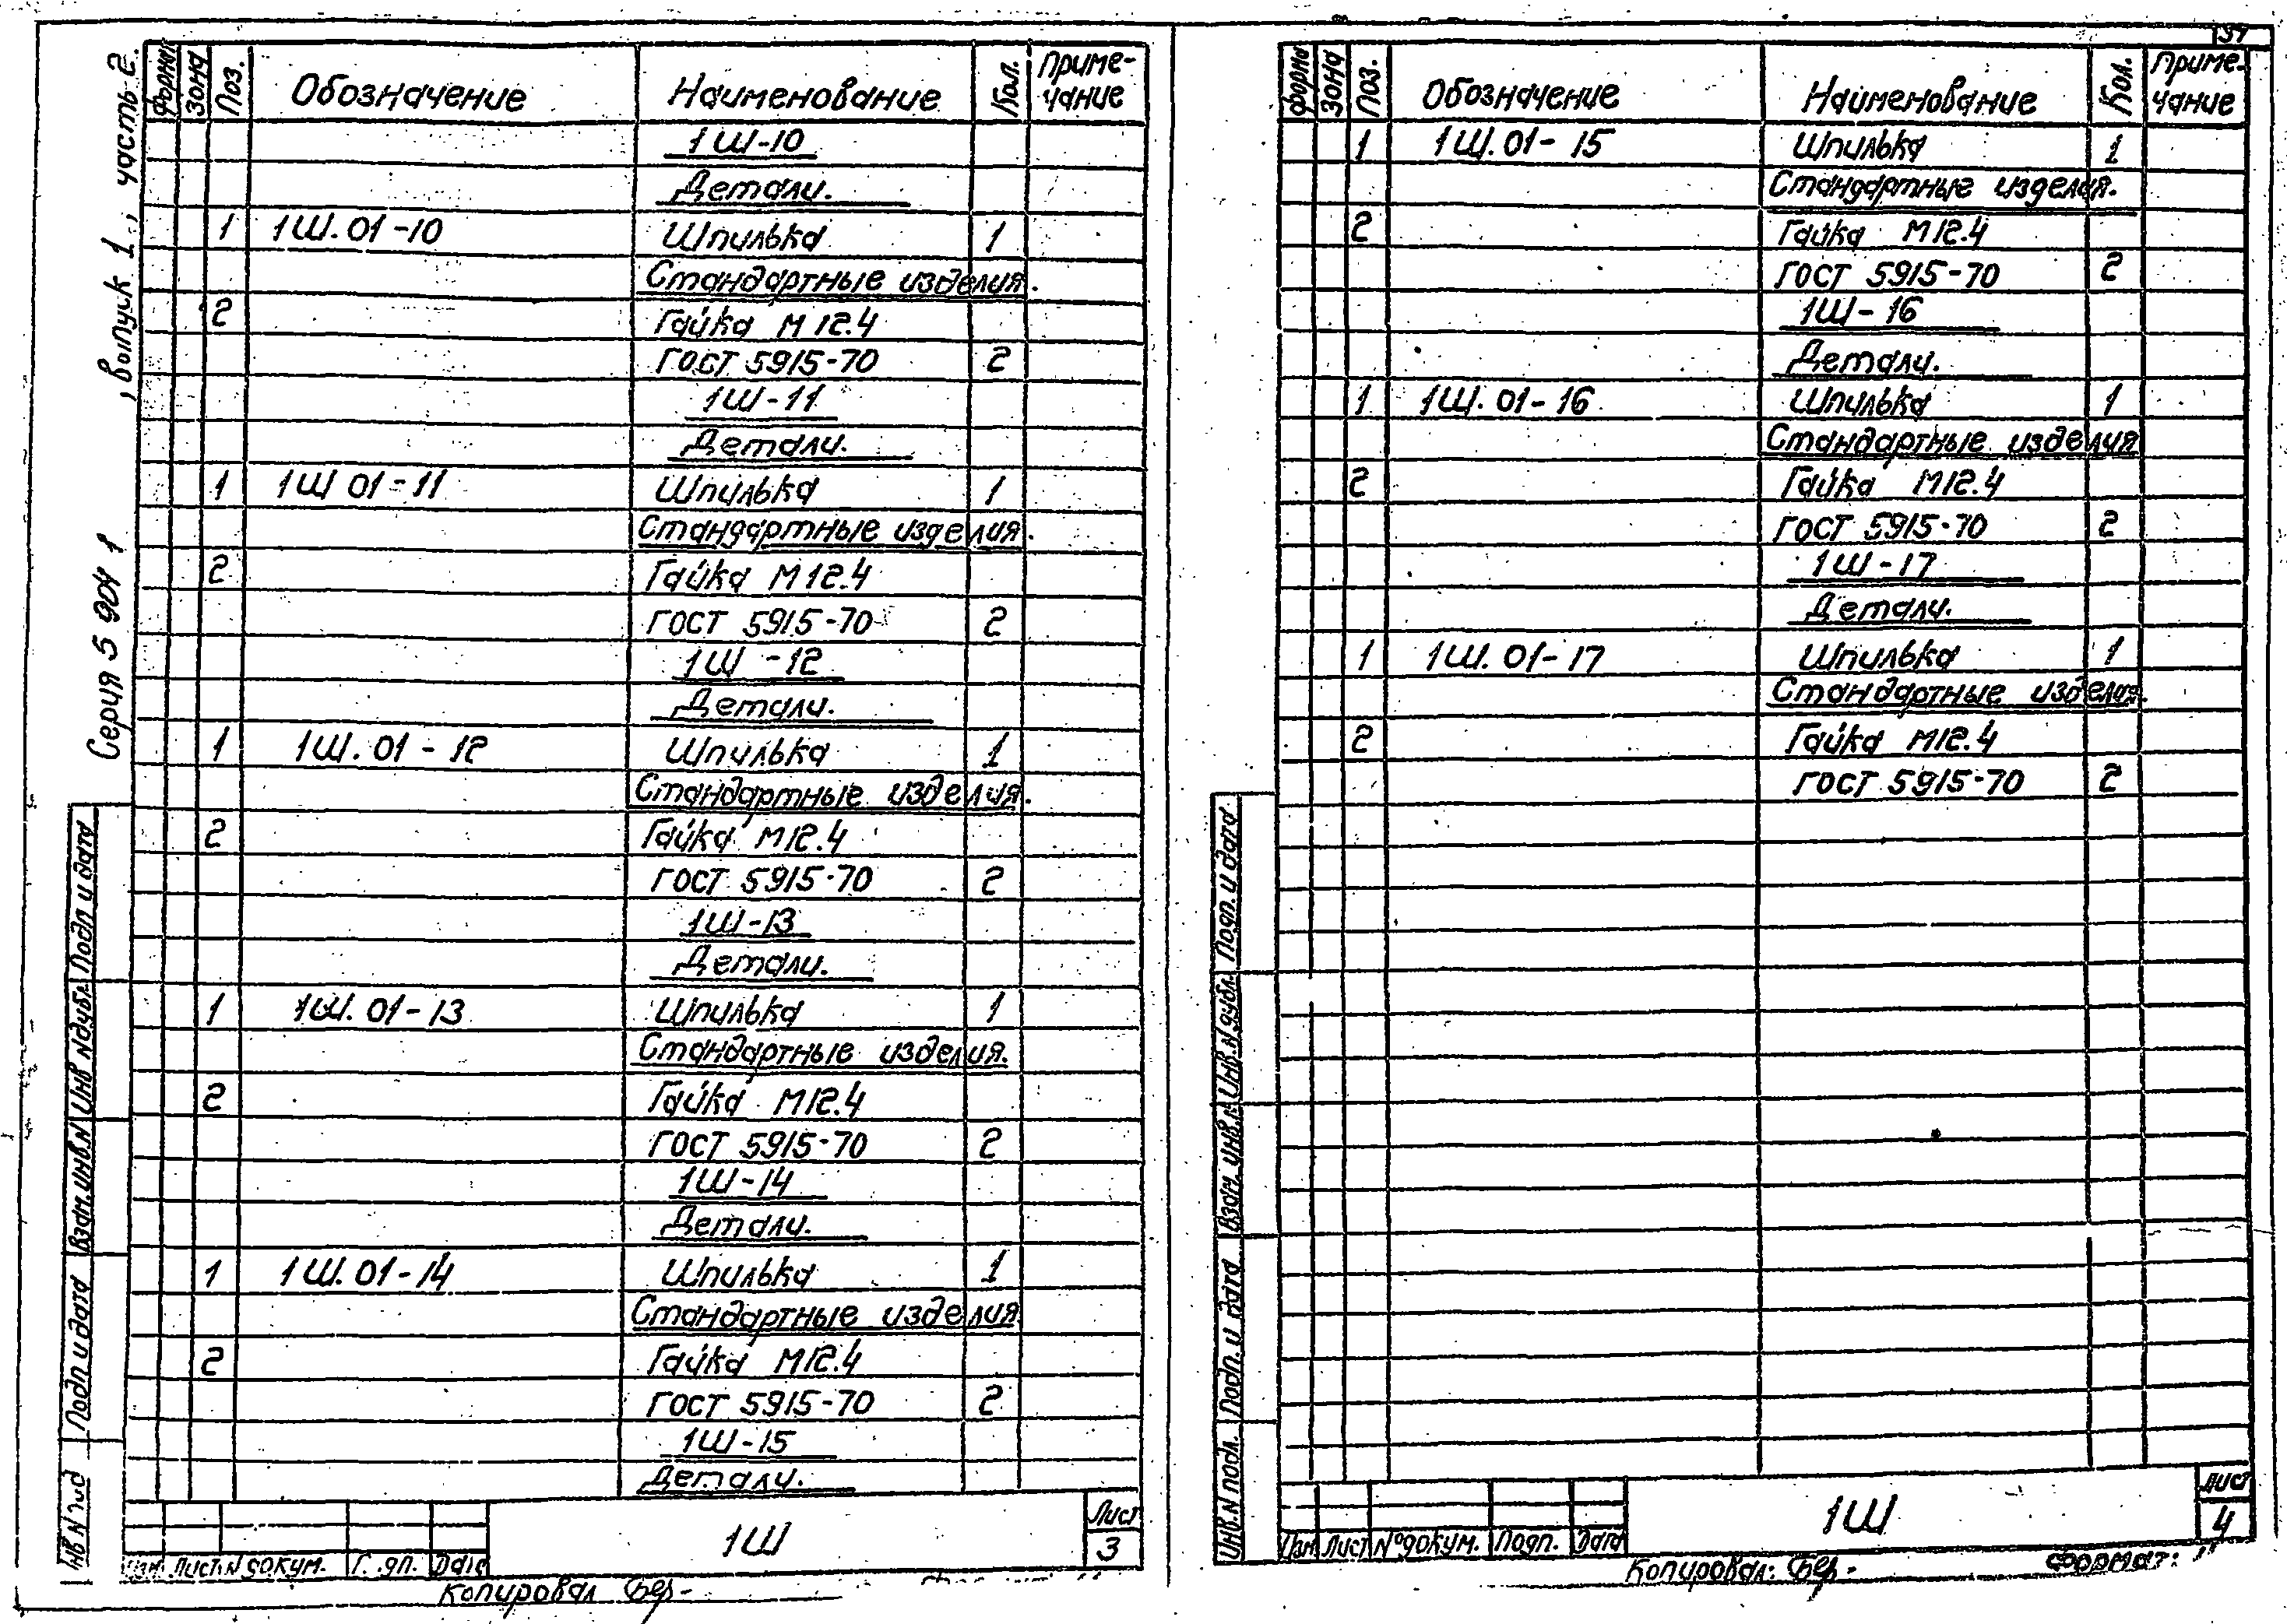 Серия 5 904 1 , выпуск 1, часть 2.
Формат Зона Поз. Обозначение Наименование Кол. Приме-
чание
1Ш-10
Детали.
1 1Ш.01-10 Шпилька 1
Стандартные изделия.
2 Гайка М12.4
ГОСТ 5915-70 2
1Ш-11
Детали.
1 1Ш 01-11 Шпилька 1
Стандартные изделия.
2 Гайка М12.4
ГОСТ 5915-70 2
1Ш -12
Детали.
1 1Ш.01-12 Шпилька 1
Стандартные изделия.
2 Гайка М12.4
ГОСТ 5915-70 2
1Ш-13
Детали.
1 1Ш.01-13 Шпилька 1
Стандартные изделия.
2 Гайка М12.4
ГОСТ 5915-70 2
1Ш-14
Детали.
1 1Ш.01-14 Шпилька 1
Стандартные изделия
2 Гайка М12.4
ГОСТ 5915-70 2
1Ш-15
Детали.
Подп и дата
Инв N дубл.
Взам.инв.N
Подп и дата
Изм Лист N докум. Дата
1Ш
Лист
3
Копировал Бер-
Форма Зона Поз. Обозначение Наименование Кол. Приме-
чание
1 1Ш.01-15 Шпилька 1
Стандартные изделия.
2 Гайка М12.4
ГОСТ 5915-70 2
1Ш-16
Детали.
1 1Ш.01-16 Шпилька 1
Стандартные изделия
2 Гайка М12.4
ГОСТ 5915-70 2
1Ш-17
Детали.
1 1Ш.01-17 Шпилька 1
Стандартные изделия.
2 Гайка М12.4
ГОСТ 5915-70 2
Подп. и дата
Инв.N дубл.
Взам. инв.N
Подп. и дата
Инв.N подл.
Изм Лист N°докум. Подп. Дата
1Ш
Лист
4
Копировал: Бер-
Формат: 11